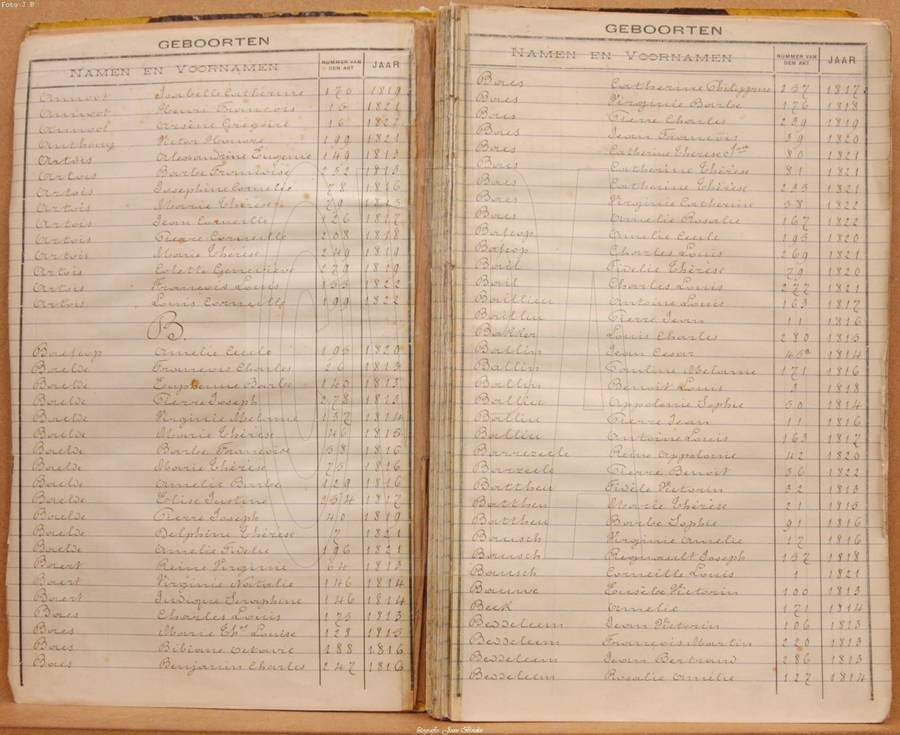 Foto J P
GEBOORTEN
NAMEN EN VOORNAMEN NUMMER VAN DEN AKT JAAR
Isabelle Catherine 170 1819
Henri Francois 15 1821
Arsène Grégoire 16
Anthony Victor Honoré 199 1821
Artois Alexandrine Eugenie 149 1813
Artois Barbe Françoise 232 1813
Artois Josephine Cornelie 78 1816
Artois Marie Thérèse 29 1815
Artois Jean Corneille 126 1817
Artois Pierre Corneille 208 1818
Artois Marie Thérèse 249 1819
Artois Colette Geneviève 279 1819
Artois François Louis 133 1822
Artois Louis Corneille 199 1822
B.
Amelie Cecile 195 1820
Baelde Francois Charles 26 1813
Baelde Barbe 140 1813
Baelde Pierre Joseph 278 1813
Baelde Virginie Melanie 137 1814
Baelde Marie Thérèse 46 1815
Baelde Barbe Françoise 58 1816
Baelde Marie Thérèse 75 1816
Baelde Amelie Barbe 129 1816
Baelde Elise Justine 254 1817
Baelde Pierre Joseph 40 1819
Baelde Delphine Thérèse 7 1821
Baelde Amelie Fidelie 196 1821
Baert Reine Virginie 64 1813
Baert Virginie Natalie 146 1814
Baert Seraphine 146 1814
Baes Charles Louis 175 1813
Baes Marie Th. Louise 128 1815
Baes Bibiane Octavie 188 1816
Baes Benjamin Charles 247 1816
GEBOORTEN
NAMEN EN VOORNAMEN NUMMER VAN DEN AKT JAAR
Baes Catherine Philippine 257 1817
Baes Virginie Barbe 176 1818
Baes Pierre Charles 239 1819
Baes Jean François 39 1820
Baes Catherine Thérèse 80 1821
Baes Catherine Thérèse 81 1821
Baes Catherine Thérèse 235 1821
Baes Virginie Catherine 58 1822
Baes Amelie Rosalie 167 1822
Amelie Cecile 195 1820
Charles Louis 269 1821
Bail Fidelie Thérèse 79 1820
Bail Charles Louis 277 1821
Baillieu Antoine Louis 163 1817
Baillieu Pierre Jean 11 1816
Bakker Louis Charles 280 1815
Ballin Jean Cesar 1814
Ballin Pauline Melanie 171 1816
Ballin Benoit Louis 1 1818
Ballieu Appolonie Sophie 50 1814
Ballieu Pierre Jean 11 1816
Ballieu Antoine Louis 163 1817
Barrezeele Reine Appolonie 42 1820
Barzeele Pierre Benoit 36 1822
Battheu Fidèle Victorin 32 1813
Battheu Marie Thérèse 21 1815
Battheu Barbe Sophie 91 1816
Bausch Virginie Amelie 17 1816
Bausch Regnault Joseph 157 1818
Bausch Corneille Louis 1 1821
Bauwe Eusèbe Victorin 100 1813
Beck Amelie 171 1814
Bedeleem Jean Victorin 106 1813
Bedeleem François Martin 220 1813
Bedeleem Jean Bertrand 286 1813
Bedeleem Rosalie Amélie 127 1814